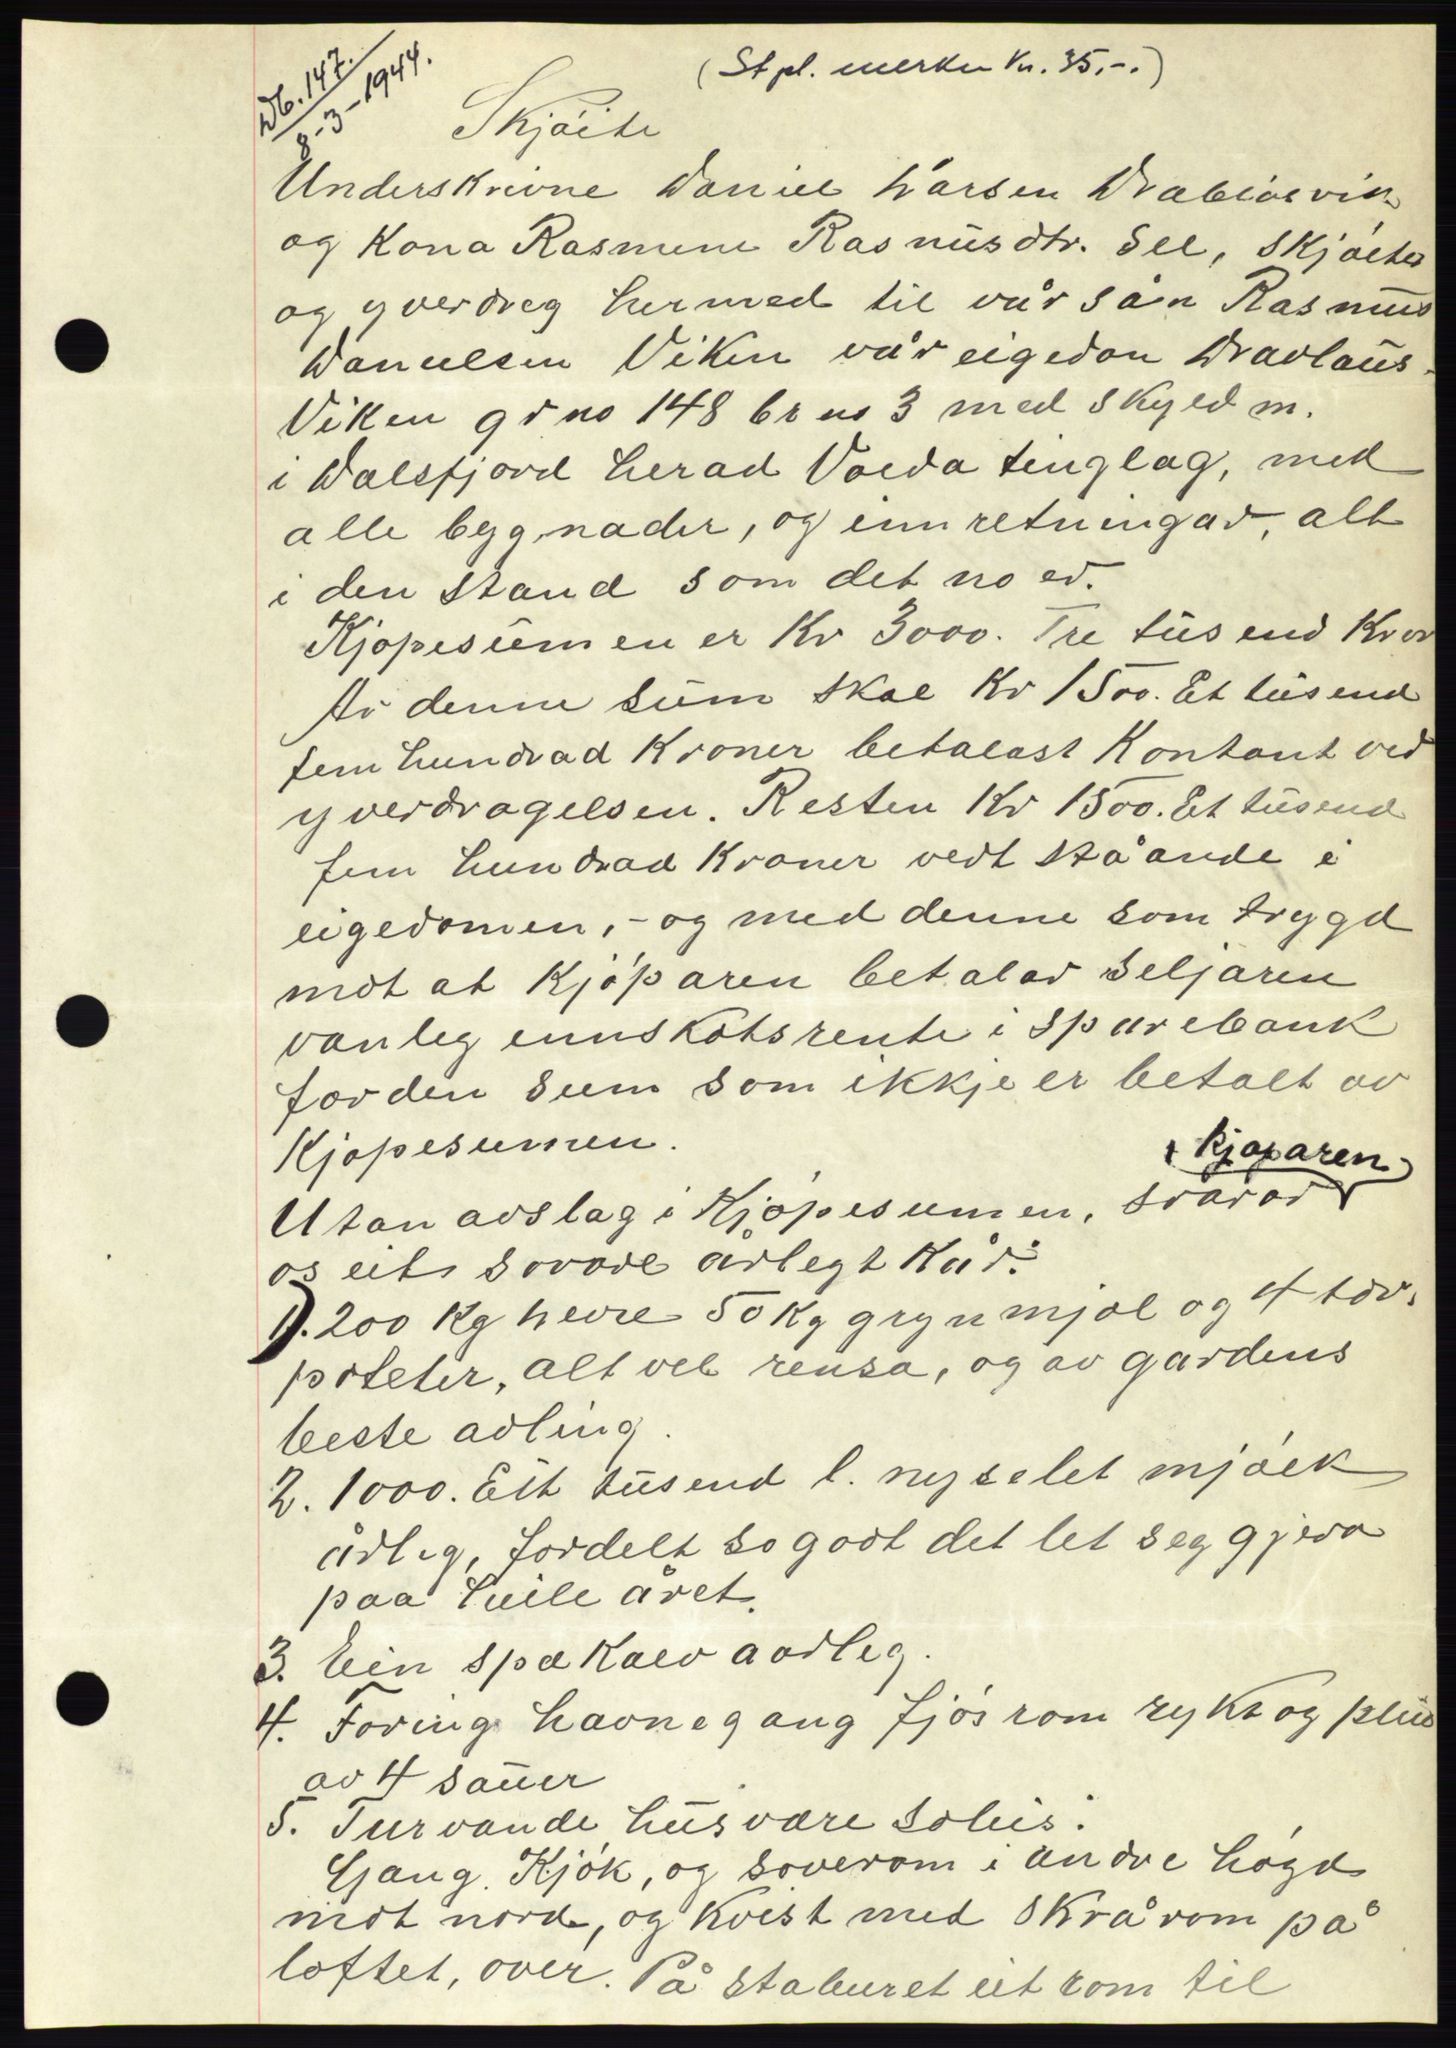 Db. 147.
8-3-1944.
(Stpl. merke kr. 35,-.)
Skjóite
Underskrivne Daniel Larsen Drablósvik
og Kona Rasmine Rasmusdtr. sel, skjóiter
og yverdreg hermed til vår sån Rasmus
Danielsen Viken vår eigedon Dravlaus-
Viken grno 148 brno 3 med skyld m.
i Dalsfjord herad Volda tinglag, med
alle bygnader, og innretningar, alt
i den stand som det no er.
Kjøpesumen er Kr 3000. Tre tusend Kror
Av denne sum skal Kr 1500. Et tusend
fem hundrad Kroner betalast Kontant ved
yverdragelsen. Resten Kr 1500. Et tusend
fem hundrad Kroner vert ståande i
eigedomen, - og med denne som trygd
mót at Kjóparen betalar seljaren
vanleg innskotsrente i sparebank
for den sum som ikkje er betalt av
Kjøpesumen.
Utan avslag i Kjópesumen, svarar kjøparen
os eit sovore årlegt Kår:
1). 200 Kg havre 50 Kg grynmjøl og 4 tdr.
poteter, alt vel rensa, og av gardens
beste avling.
2. 1000. Eit tusend l. nysilet mjólk
årleg, fordelt so godt det let seg gjera
paa heile året.
3. Ein spækalv aarleg.
4. Foring havnegang fjósrom rykt og pleie
av 4 sauer
5. Turvande husvære soleis:
Gang. Kjók, og soverom i andre hógd
mót nord, og Kvist med skrårom på
loftet, over. På staburet eit rom til